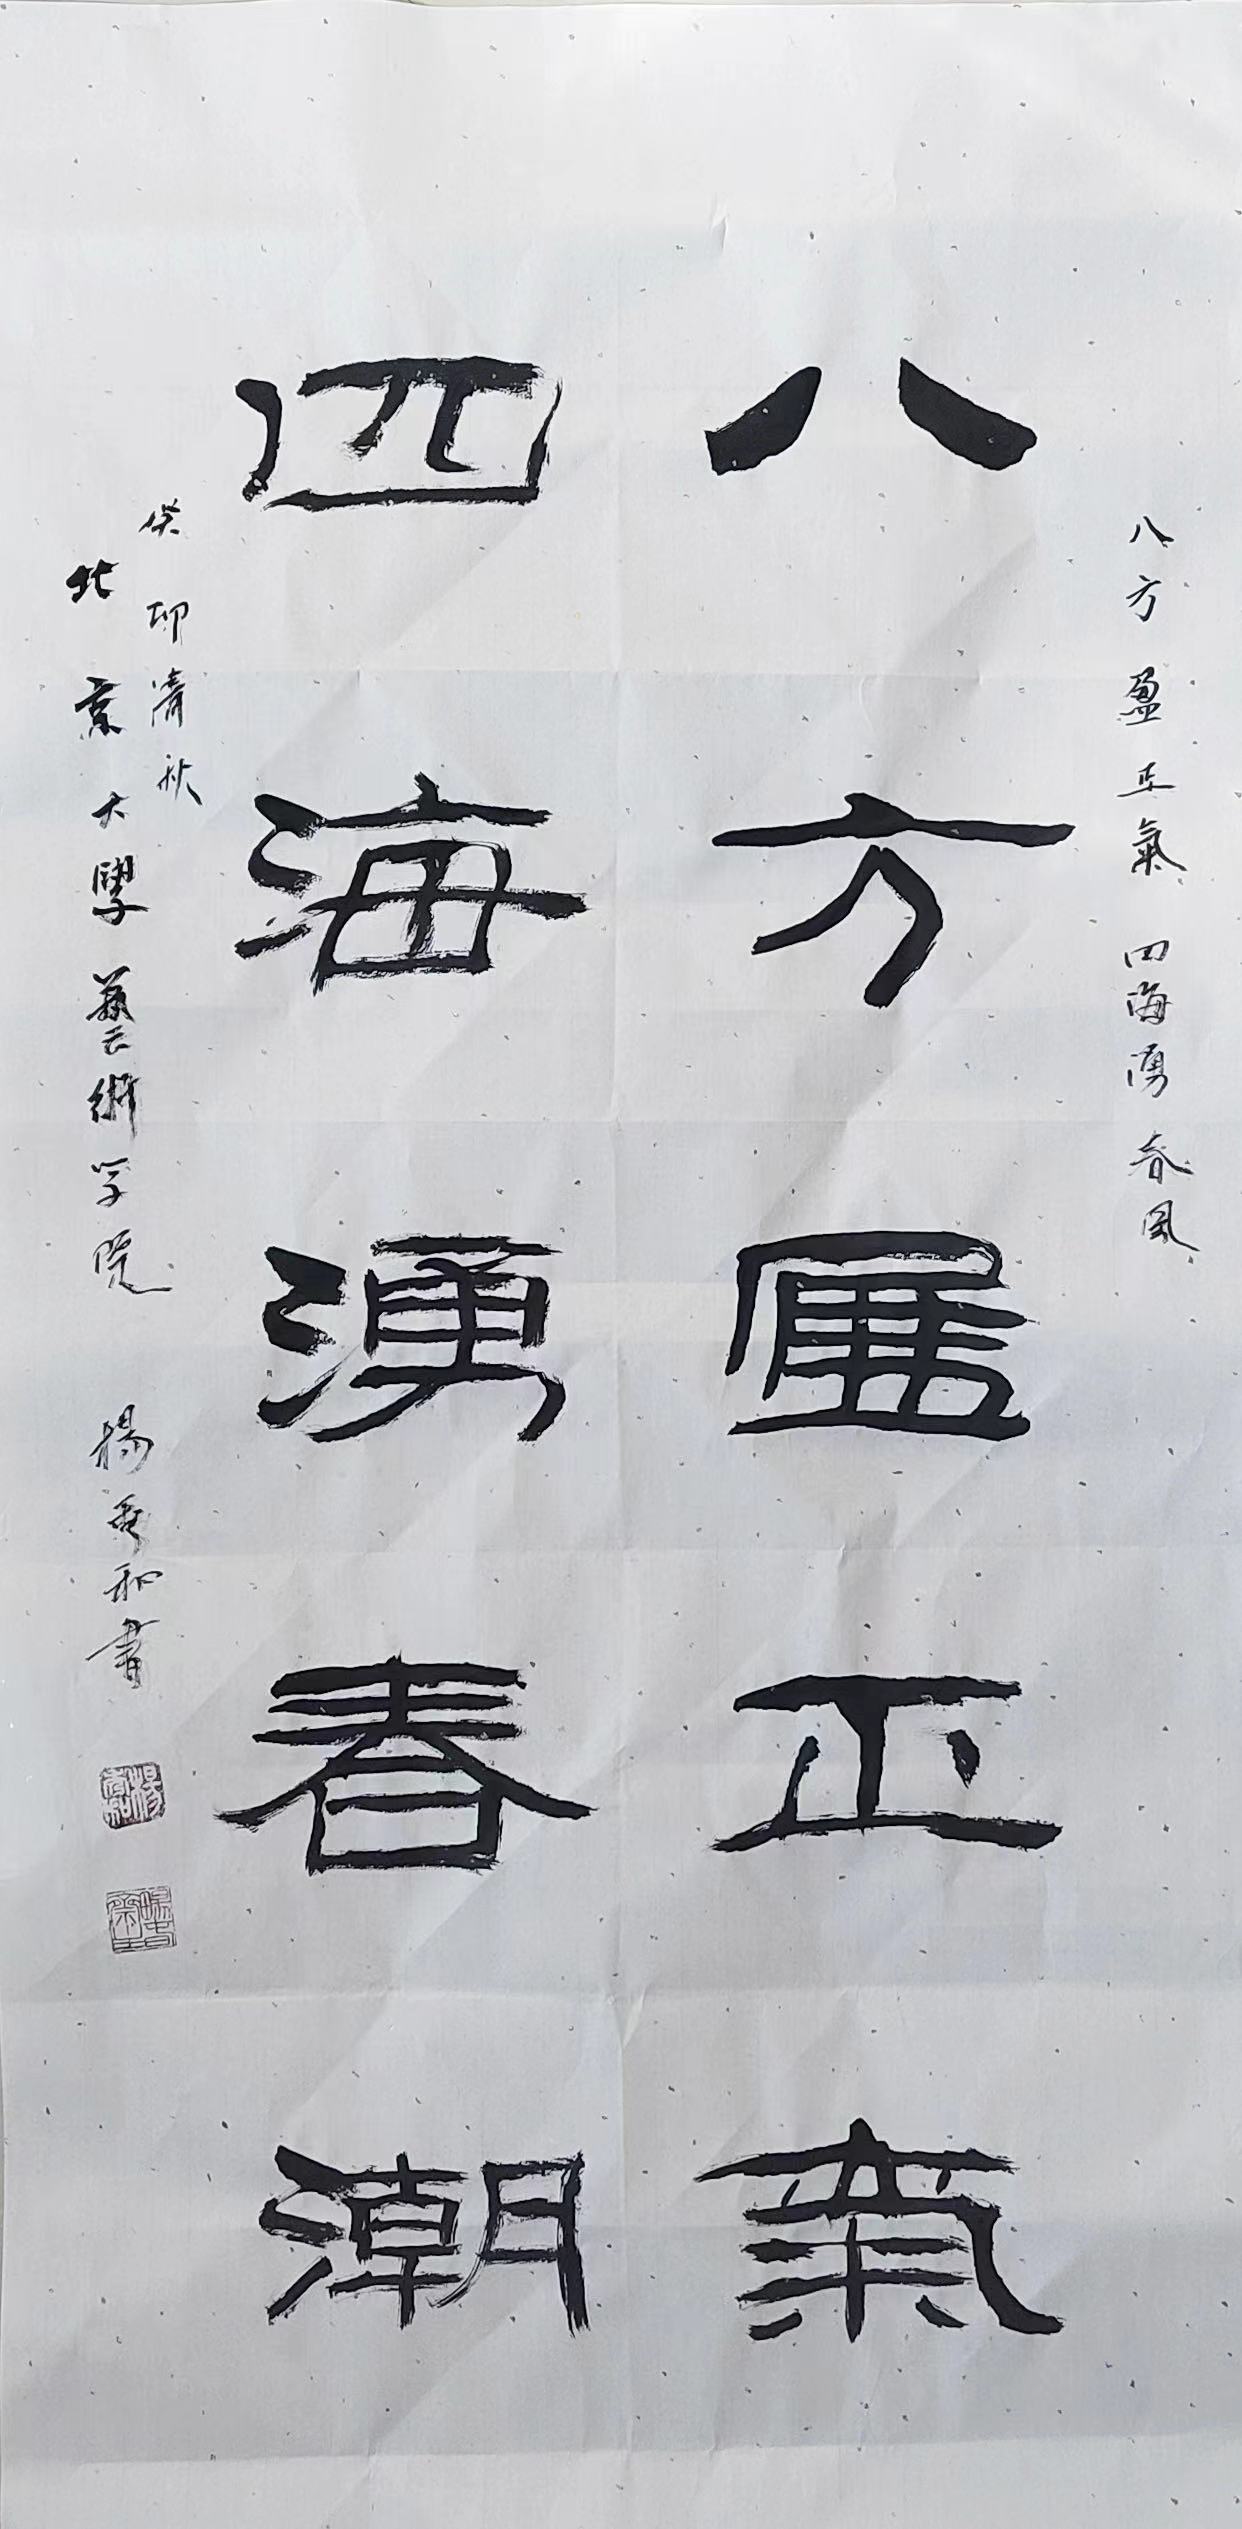 八方盈正氣四海湧春風
八方盈正氣
四海湧春潮
癸卯清秋
北京大學藝術学院
楊 和書